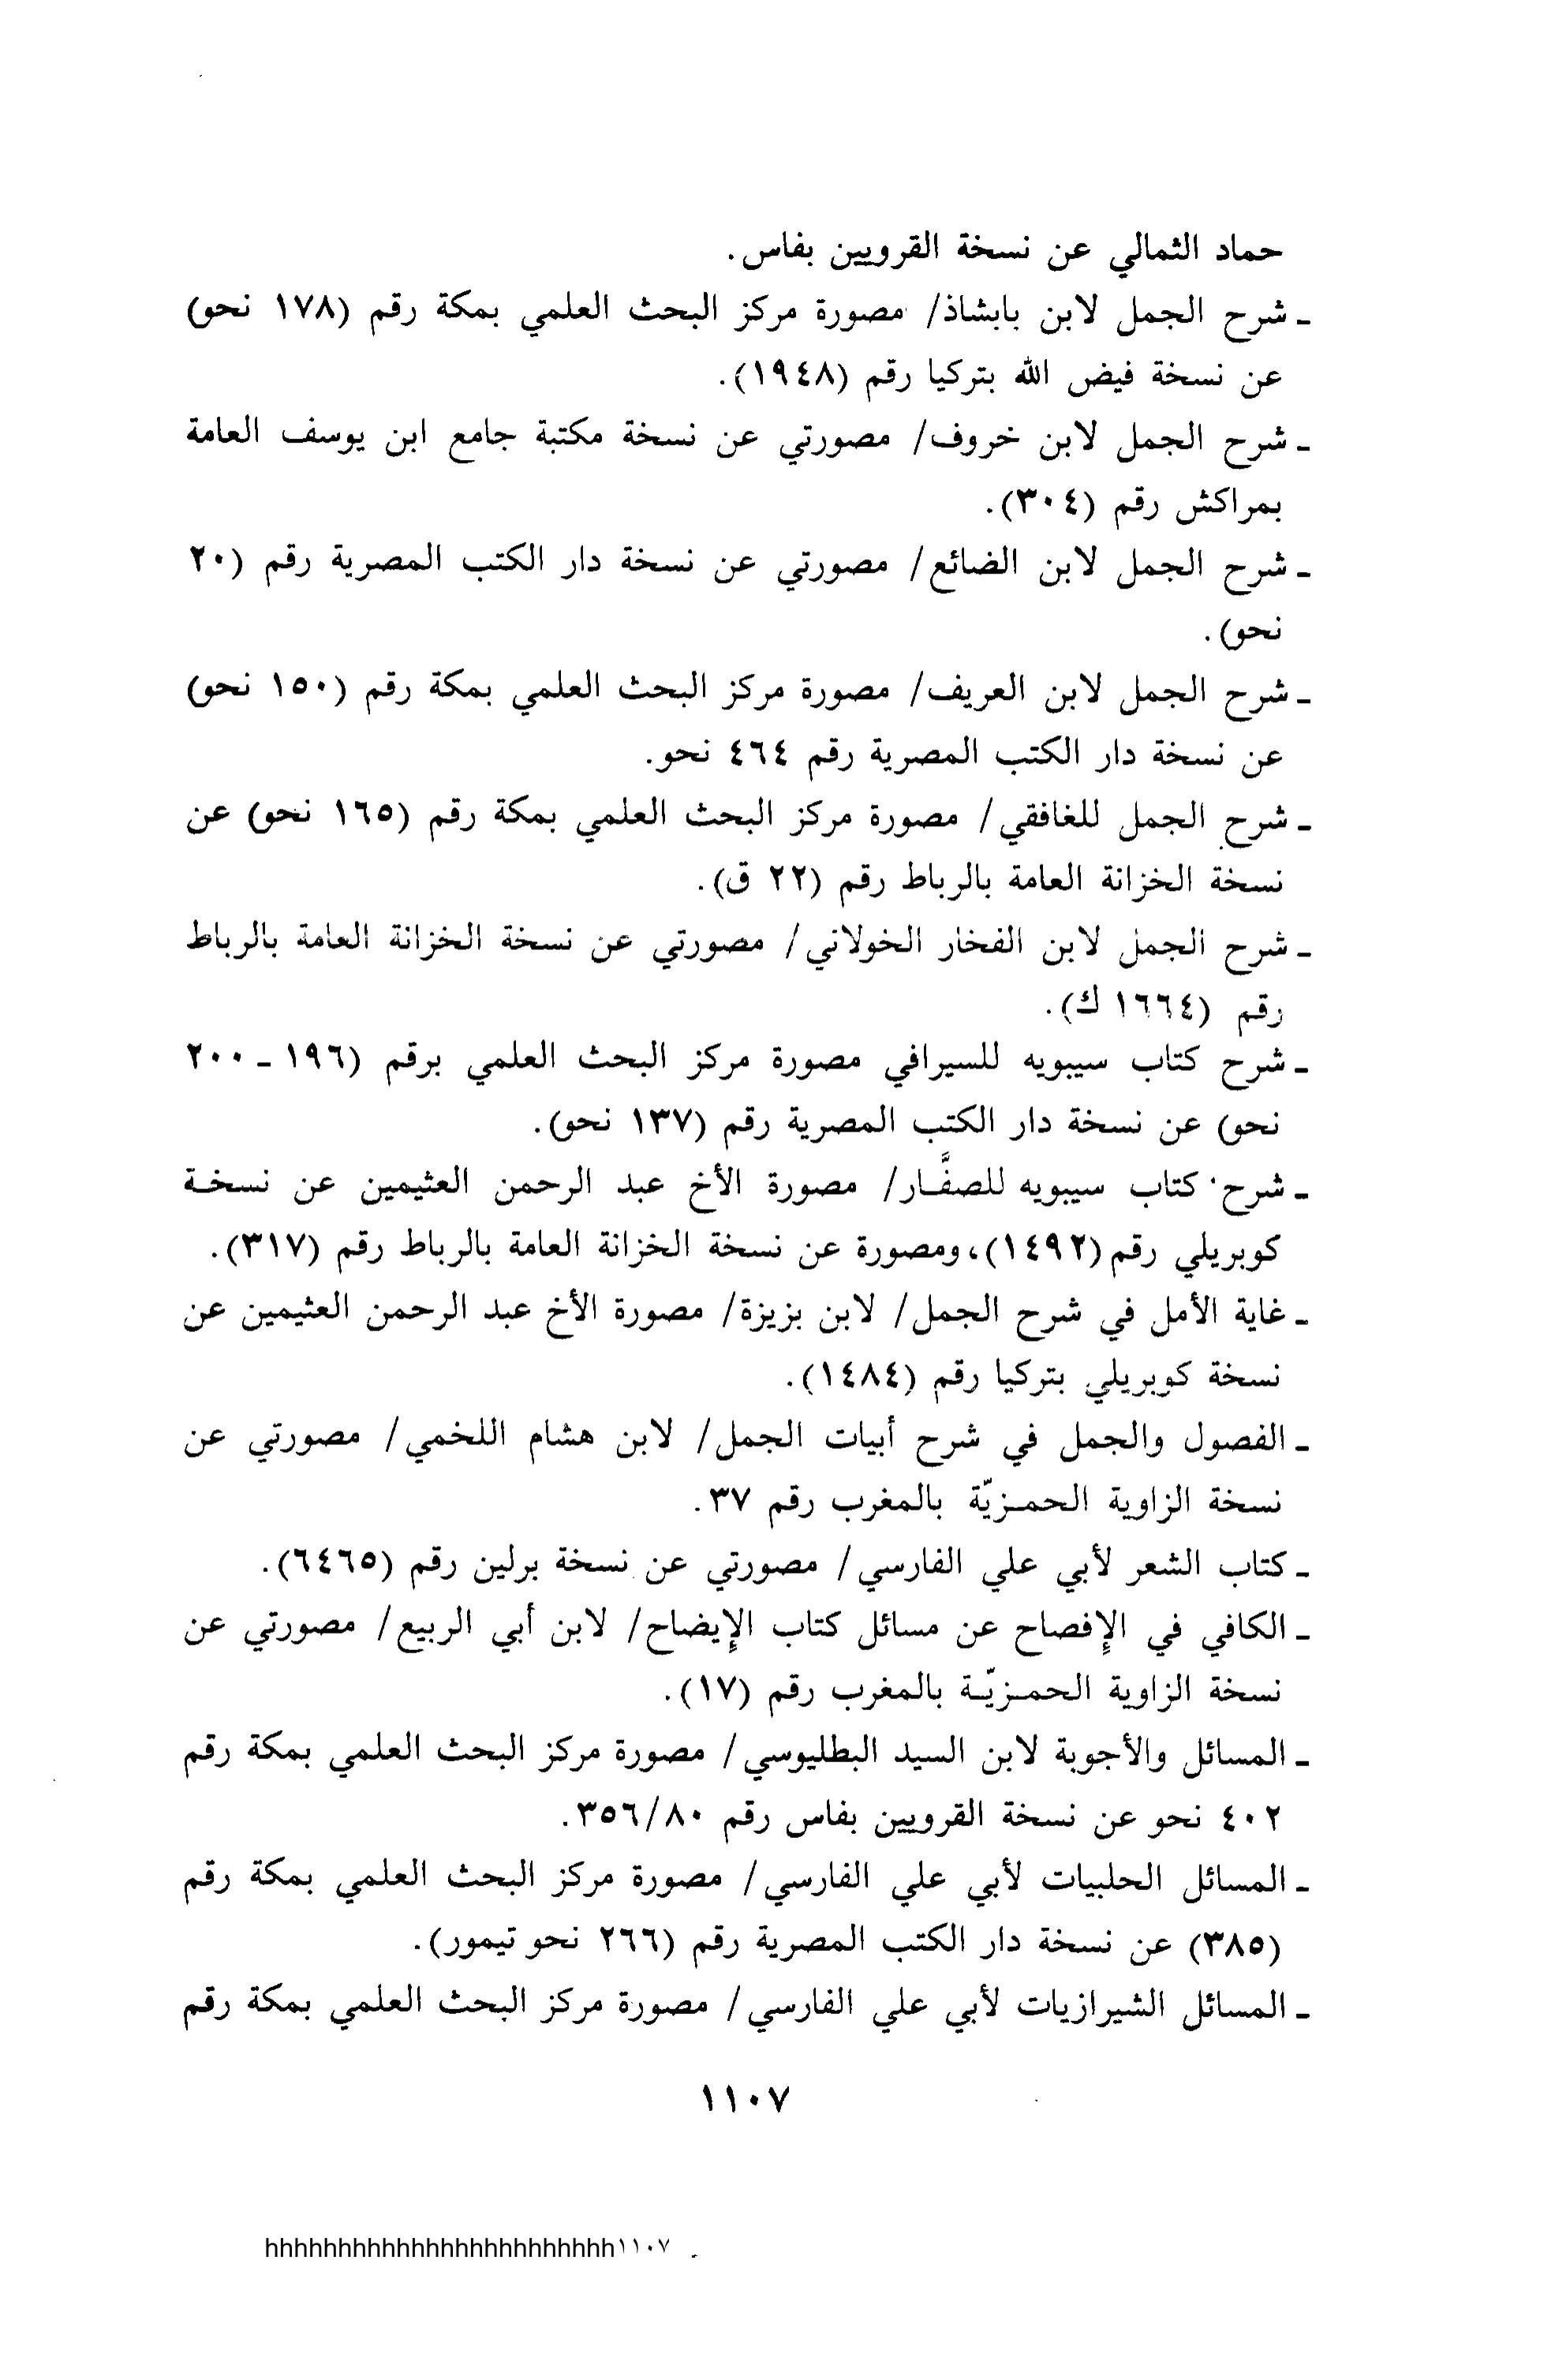 حماد الثمالي عن نسخة القرويين بفاس.
ـ شرح الجمل لابن بابشاذ/ مصورة مركز البحث العلمي بمكة رقم (١٧٨ نحو)
عن نسخة فيض الله بتركيا رقم (١٩٤٨).
ـ شرح الجمل لابن خروف/ مصورتي عن نسخة مكتبة جامع ابن يوسف العامة
بمراكش رقم (٣٠٤).
ـ شرح الجمل لابن الضائع/ مصورتي عن نسخة دار الكتب المصرية رقم (٢٠
نحو).
ـ شرح الجمل لابن العريف/ مصورة مركز البحث العلمي بمكة رقم (١٥٠ نحو)
عن نسخة دار الكتب المصرية رقم ٤٦٤ نحو.
ـ شرح الجمل للغافقي/ مصورة مركز البحث العلمي بمكة رقم (١٦٥ نحو) عن
نسخة الخزانة العامة بالرباط رقم (٢٢ ق).
ـ شرح الجمل لابن الفخار الخولاني/ مصورتي عن نسخة الخزانة العامة بالرباط
رقم (١٦٦٤ ك).
ـ شرح كتاب سيبويه للسيرافي مصورة مركز البحث العلمي برقم (١٩٦ ـ ٢٠٠
نحو) عن نسخة دار الكتب المصرية رقم (١٣٧ نحو).
ـ شرح كتاب سيبويه للصفَّار/ مصورة الأخ عبد الرحمن العثيمين عن نسخة
كوبريلي رقم (١٤٩٢)، ومصورة عن نسخة الخزانة العامة بالرباط رقم (٣١٧).
ـ غاية الأمل في شرح الجمل/ لابن بزيزة/ مصورة الأخ عبد الرحمن العثيمين عن
نسخة كوبريلي بتركيا رقم (١٤٨٤).
ـ الفصول والجمل في شرح أبيات الجمل/ لابن هشام اللخمي/ مصورتي عن
نسخة الزاوية الحمـزيّة بالمغرب رقم ٣٧.
ـ كتاب الشعر لأبي علي الفارسي/ مصورتي عن نسخة برلين رقم (٦٤٦٥).
ـ الكافي في الإفصاح عن مسائل كتاب الإيضاح/ لابن أبي الربيع/ مصورتي عن
نسخة الزاوية الحمـزيّـة بالمغرب رقم (١٧).
ـ المسائل والأجوبة لابن السيد البطليوسي/ مصورة مركز البحث العلمي بمكة رقم
٤٠٢ نحو عن نسخة القرويين بفاس رقم ٣٥٦/٨٠.
ـ المسائل الحلبيات لأبي علي الفارسي/ مصورة مركز البحث العلمي بمكة رقم
(٣٨٥) عن نسخة دار الكتب المصرية رقم (٢٦٦ نحو تيمور).
ـ المسائل الشيرازيات لأبي علي الفارسي/ مصورة مركز البحث العلمي بمكة رقم
١١٠٧
hhhhhhhhhhhhhhhhhhhhhhhh١١٠٧